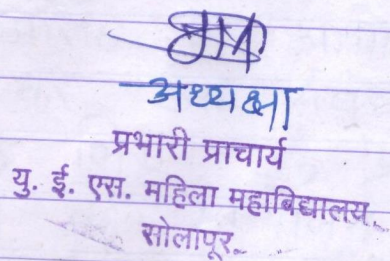 अध्यक्षा
प्रभारी प्राचार्य
यु. ई. एस. महिला महाविद्यालय,
सोलापूर.